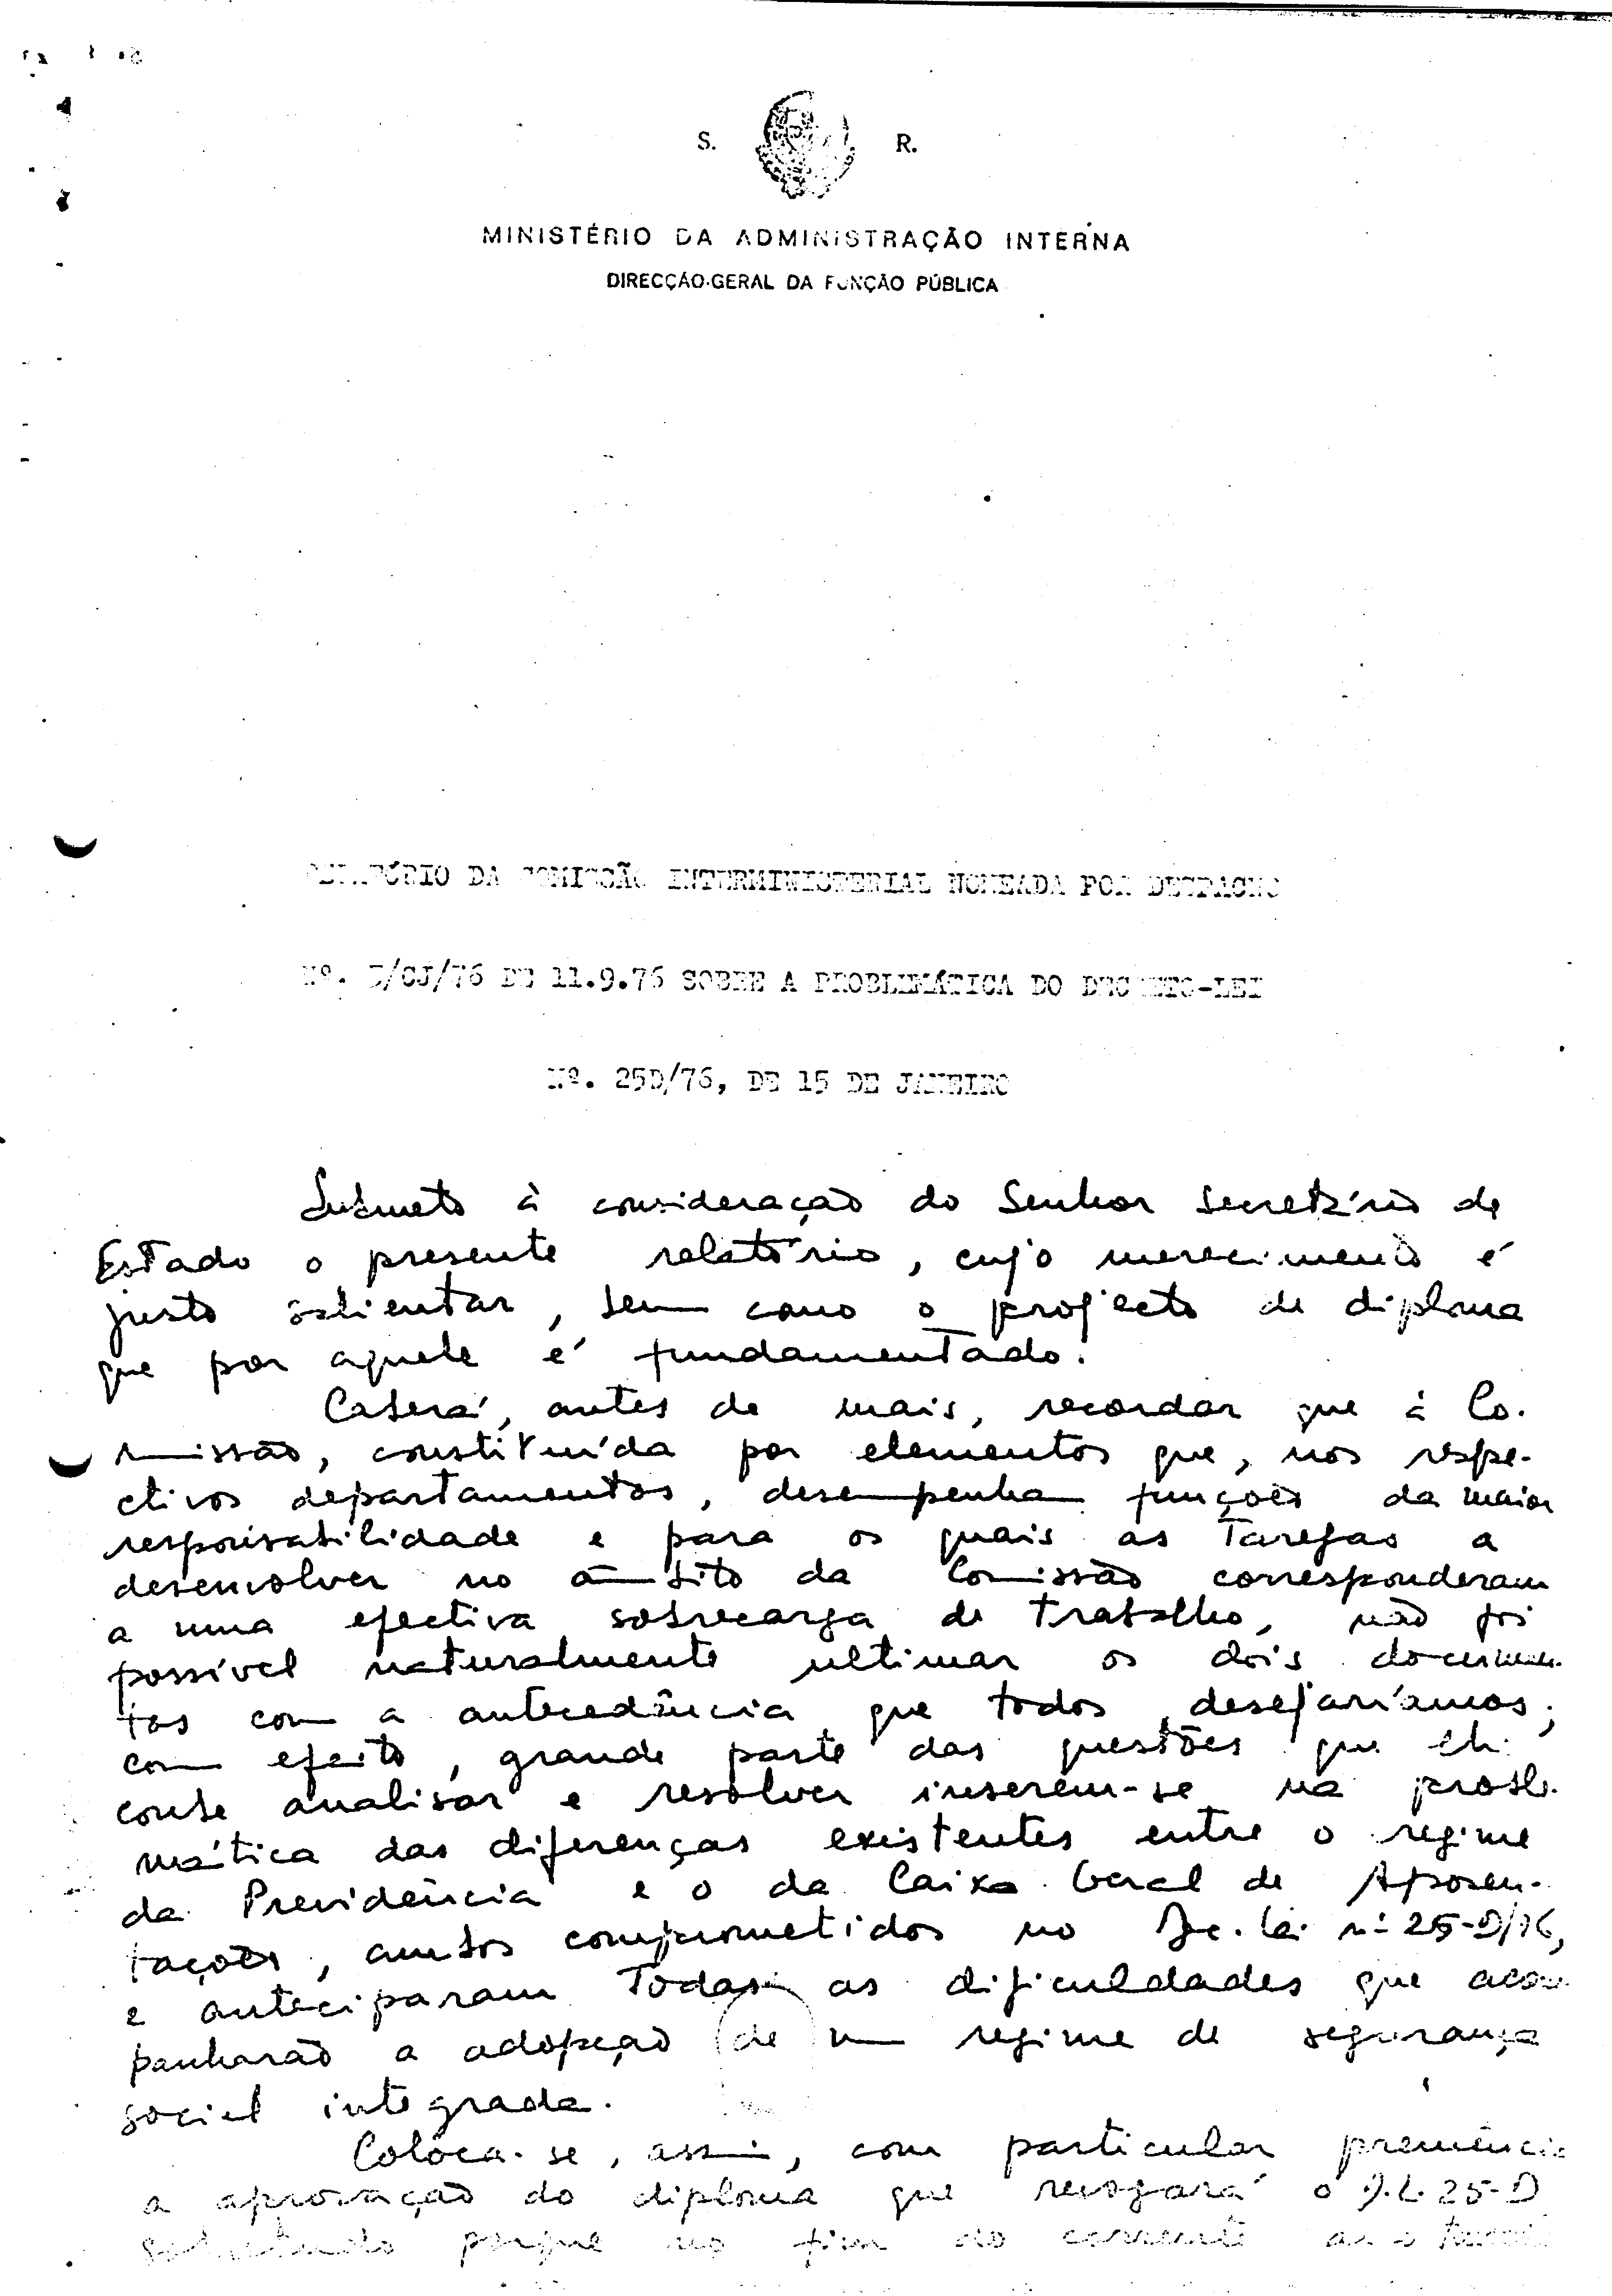 S. R.
MINISTÉRIO DA ADMINISTRAÇÃO INTERNA
DIRECÇÃO-GERAL DA FUNÇÃO PÚBLICA
RELATÓRIO DA COMISSÃO INTERMINISTERIAL NOMEADA POR DESPACHO
Nº. /CJ/76 DE 11.9.76 SOBRE A PROBLEMÁTICA DO DECRETO-LEI
Nº. 25D/76, DE 15 DE JANEIRO
Submeto à consideração do Senhor Secretário de
Estado o presente relatório, cujo merecimento é
justo salientar, bem como o projecto de diploma
que por aquele é fundamentado.
Caberá, antes de mais, recordar que à Co-
missão, constituída por elementos que, nos respe-
ctivos departamentos, desempenham funções da maior
responsabilidade e para os quais as tarefas a
desenvolver no âmbito da Comissão corresponderam
a uma efectiva sobrecarga de trabalho, não foi
possível naturalmente ultimar os dois documen-
tos com a antecedência que todos desejaríamos;
com efeito, grande parte das questões que lhe
coube analisar e resolver inserem-se na proble-
mática das diferenças existentes entre o regime
da Previdência e o da Caixa Geral de Aposen-
tações, ambos comprometidos no Dec. Lei nº 25-D/76,
e anteciparam todas as dificuldades que acom-
panharão a adopção de um regime de segurança
social integrada.
Coloca-se, assim, com particular premência
a aprovação do diploma que revogará o D.L. 25-D
sobretudo porque no fim do corrente ano